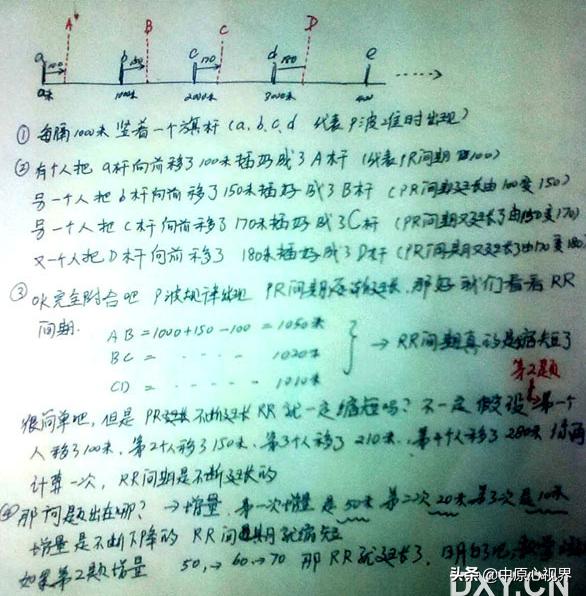 A B C D
a 100 b 150 c 170 d 180 e
0米 1000米 2000米 3000米 4000
① 每隔1000米 竖着一个旗杆 (a、b、c、d 代表P波准时出现)
② 有个人把 a杆向前移了100米插好成了A杆 (代表PR间期 100)
另一个人把 b杆向前移了150米插好成了B杆 (PR间期延长由100变150)
另一个人把 c杆向前移了170米插好成了C杆 (PR间期又延长了由150变170)
又一个人把D杆向前移了 180米插好成了D杆 (PR间期又延长了由170变180
③ OK完全附合吧 P波规律出现 PR间期逐渐延长,那好 我们看看RR
间期.
AB=1000+150-100=1050米
BC= 1020米
CD= 1010米
→ RR间期真的是缩短了
第2题
很简单吧,但是 PR 不断延长 RR 就一定缩短吗? 不一定 假设 第一个
人移了100米、第2个人移了150米、第3个人移了210米、第4个人移了280米 你再
计算一次,RR间期是不断延长的
④ 那问题出在哪? → 增量. 第一次增量 是50米 第二次20米 第3次是10米
增量是不断下降的 RR间期就缩短
如果第2题增量 50,→60→70 那RR就延长了.明白了吧
头条@中原心视界
DXY.CN